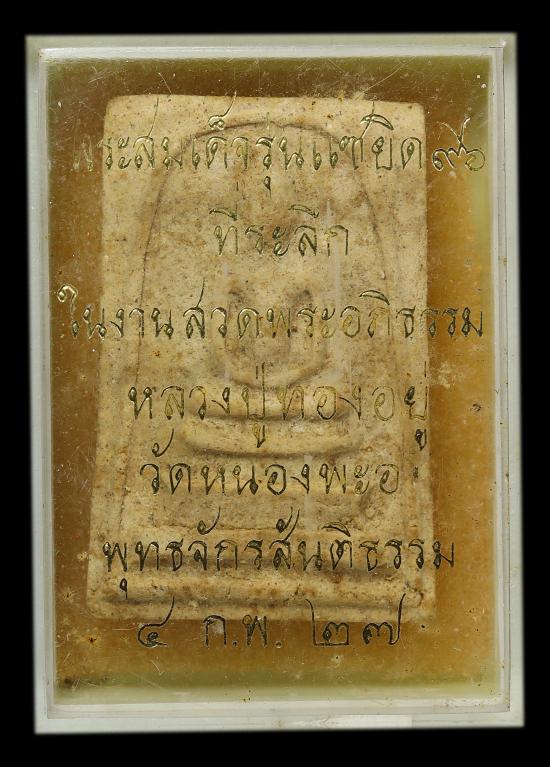 พระสมเด็จรุ่นแซยิด ๙๖
ที่ระลึก
ในงานสวดพระอภิธรรม
หลวงปู่ทองอยู่
วัดหนองพะอง
พุทธจักรสันติธรรม
๔ ก.พ. ๒๗